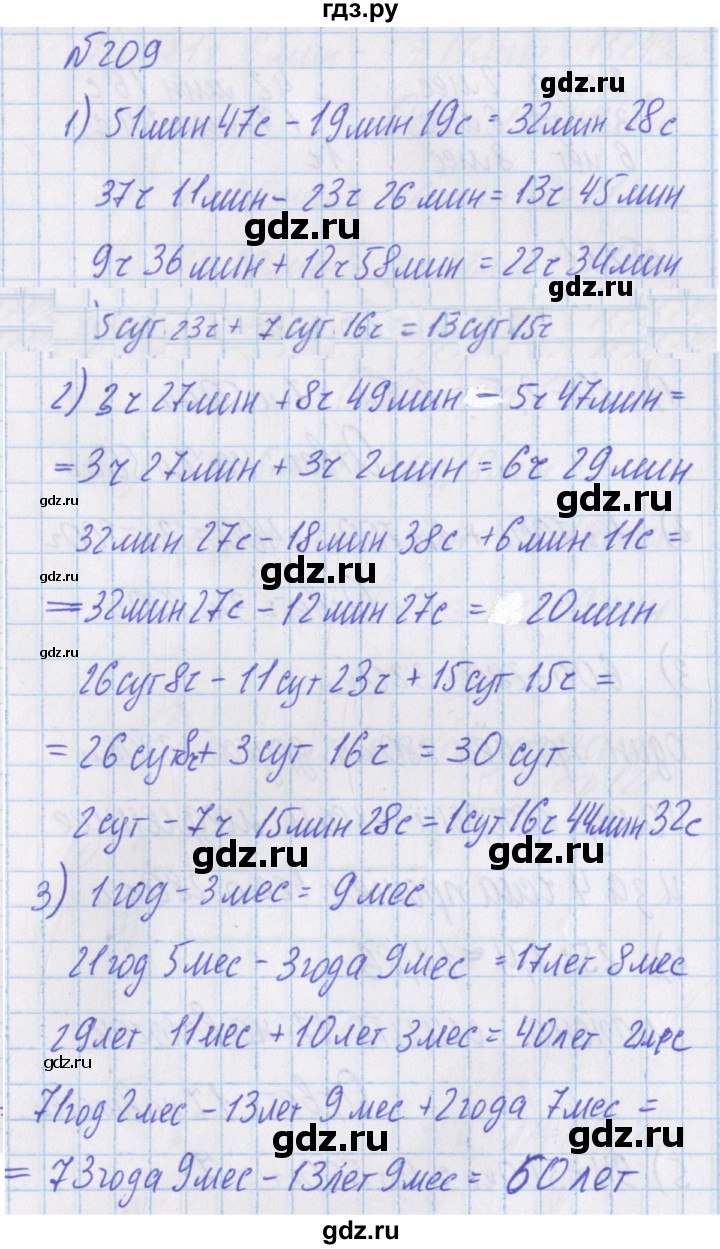 гдз.ру
№209
gdz.ru
1) 51мин 47с - 19мин 19с = 32мин 28с
37ч 11мин - 23ч 26мин = 13ч 45мин
gdz.ru
9ч 36мин + 12ч 58мин = 22ч 34мин
gdz.ru
5сут 23ч + 7сут 16ч = 13сут 15ч
2) 3ч 27мин + 8ч 49мин - 5ч 47мин =
= 3ч 27мин + 3ч 2мин = 6ч 29мин
gdz.ru
gdz.ru
32мин 27с - 18мин 38с + 6мин 11с =
gdz.ru
gdz.ru
= 32мин 27с - 12мин 27с = 20мин
gdz.ru
26сут 8ч - 11сут 23ч + 15сут 15ч =
= 26сут 8ч + 3сут 16ч = 30сут
2сут - 7ч 15мин 28с = 1сут 16ч 44мин 32с
gdz.ru
gdz.ru
3) 1год - 3мес = 9мес
21год 5мес - 3года 9мес = 17лет 8мес
29лет 11мес + 10лет 3мес = 40лет 2мес
gdz.ru
71год 2мес - 13лет 9мес + 2года 7мес =
gdz.ru
gdz.ru
= 73года 9мес - 13лет 9мес = 60лет
gdz.ru